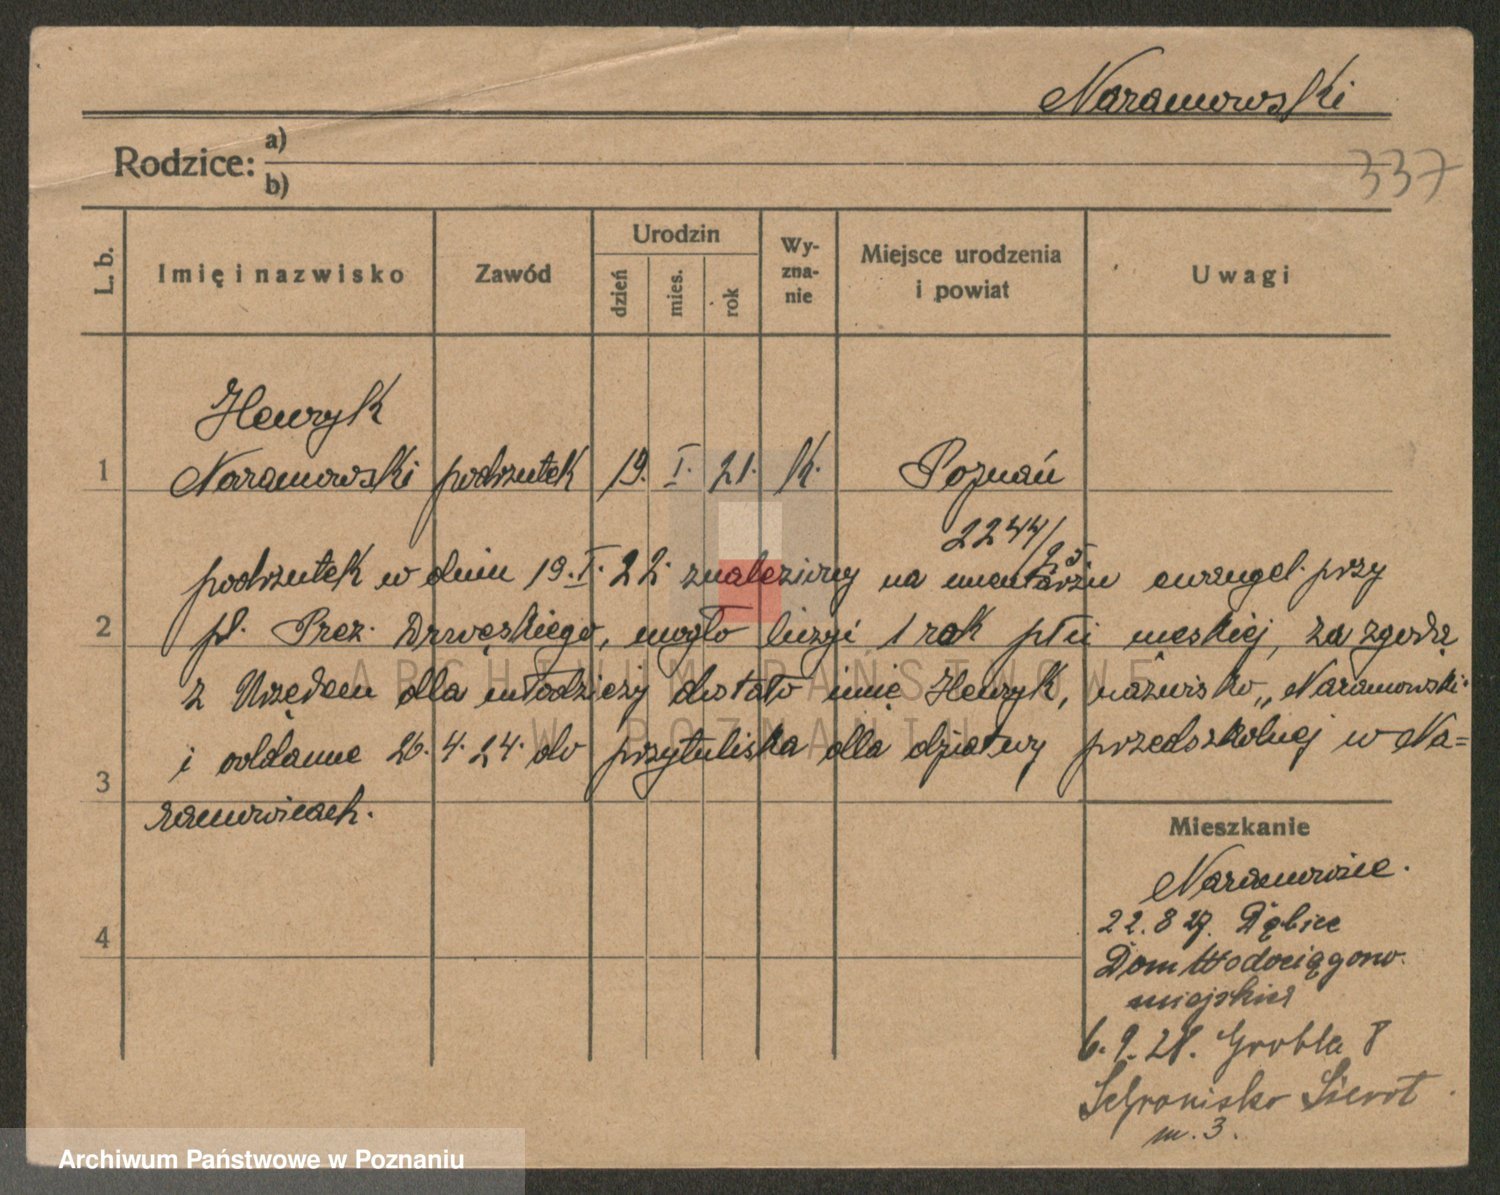 Naramowski
337
Rodzice: a)
b)
L. b.
Imię i nazwisko
Zawód
Urodzin
dzień
mies.
rok
Wy-
zna-
nie
Miejsce urodzenia
i powiat
Uwagi
Henryk
1 Naramowski podrzutek 19. I. 21. k. Poznań
2244/25
podrzutek w dniu 19. I. 22. znaleziony na cmentarzu ewangel. przy
2 pl. Prez. Drwęskiego, mogło liczyć 1 rok płci męskiej, za zgodą
z Urzędem dla młodzieży dostało imię Henryk, nazwisko „Naramowski"
i oddane 26. 4. 24. do przytuliska dla dziatwy przedszkolnej w Na=
3
ramowicach.
Mieszkanie
Naramowice.
22. 8 27. Dębiec
4
Dom Wodociągowo
miejskie
6. 9. 28. Grobla 8
Schronisko Sierot
m. 3.
ARCHIWUM PAŃSTWOWE
W POZNANIU
Archiwum Państwowe w Poznaniu